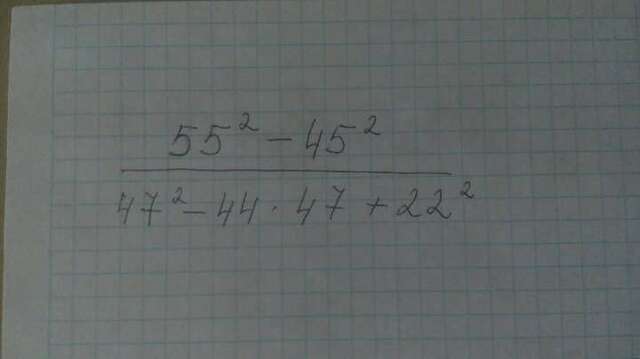 55² - 45²
47² - 44 · 47 + 22²